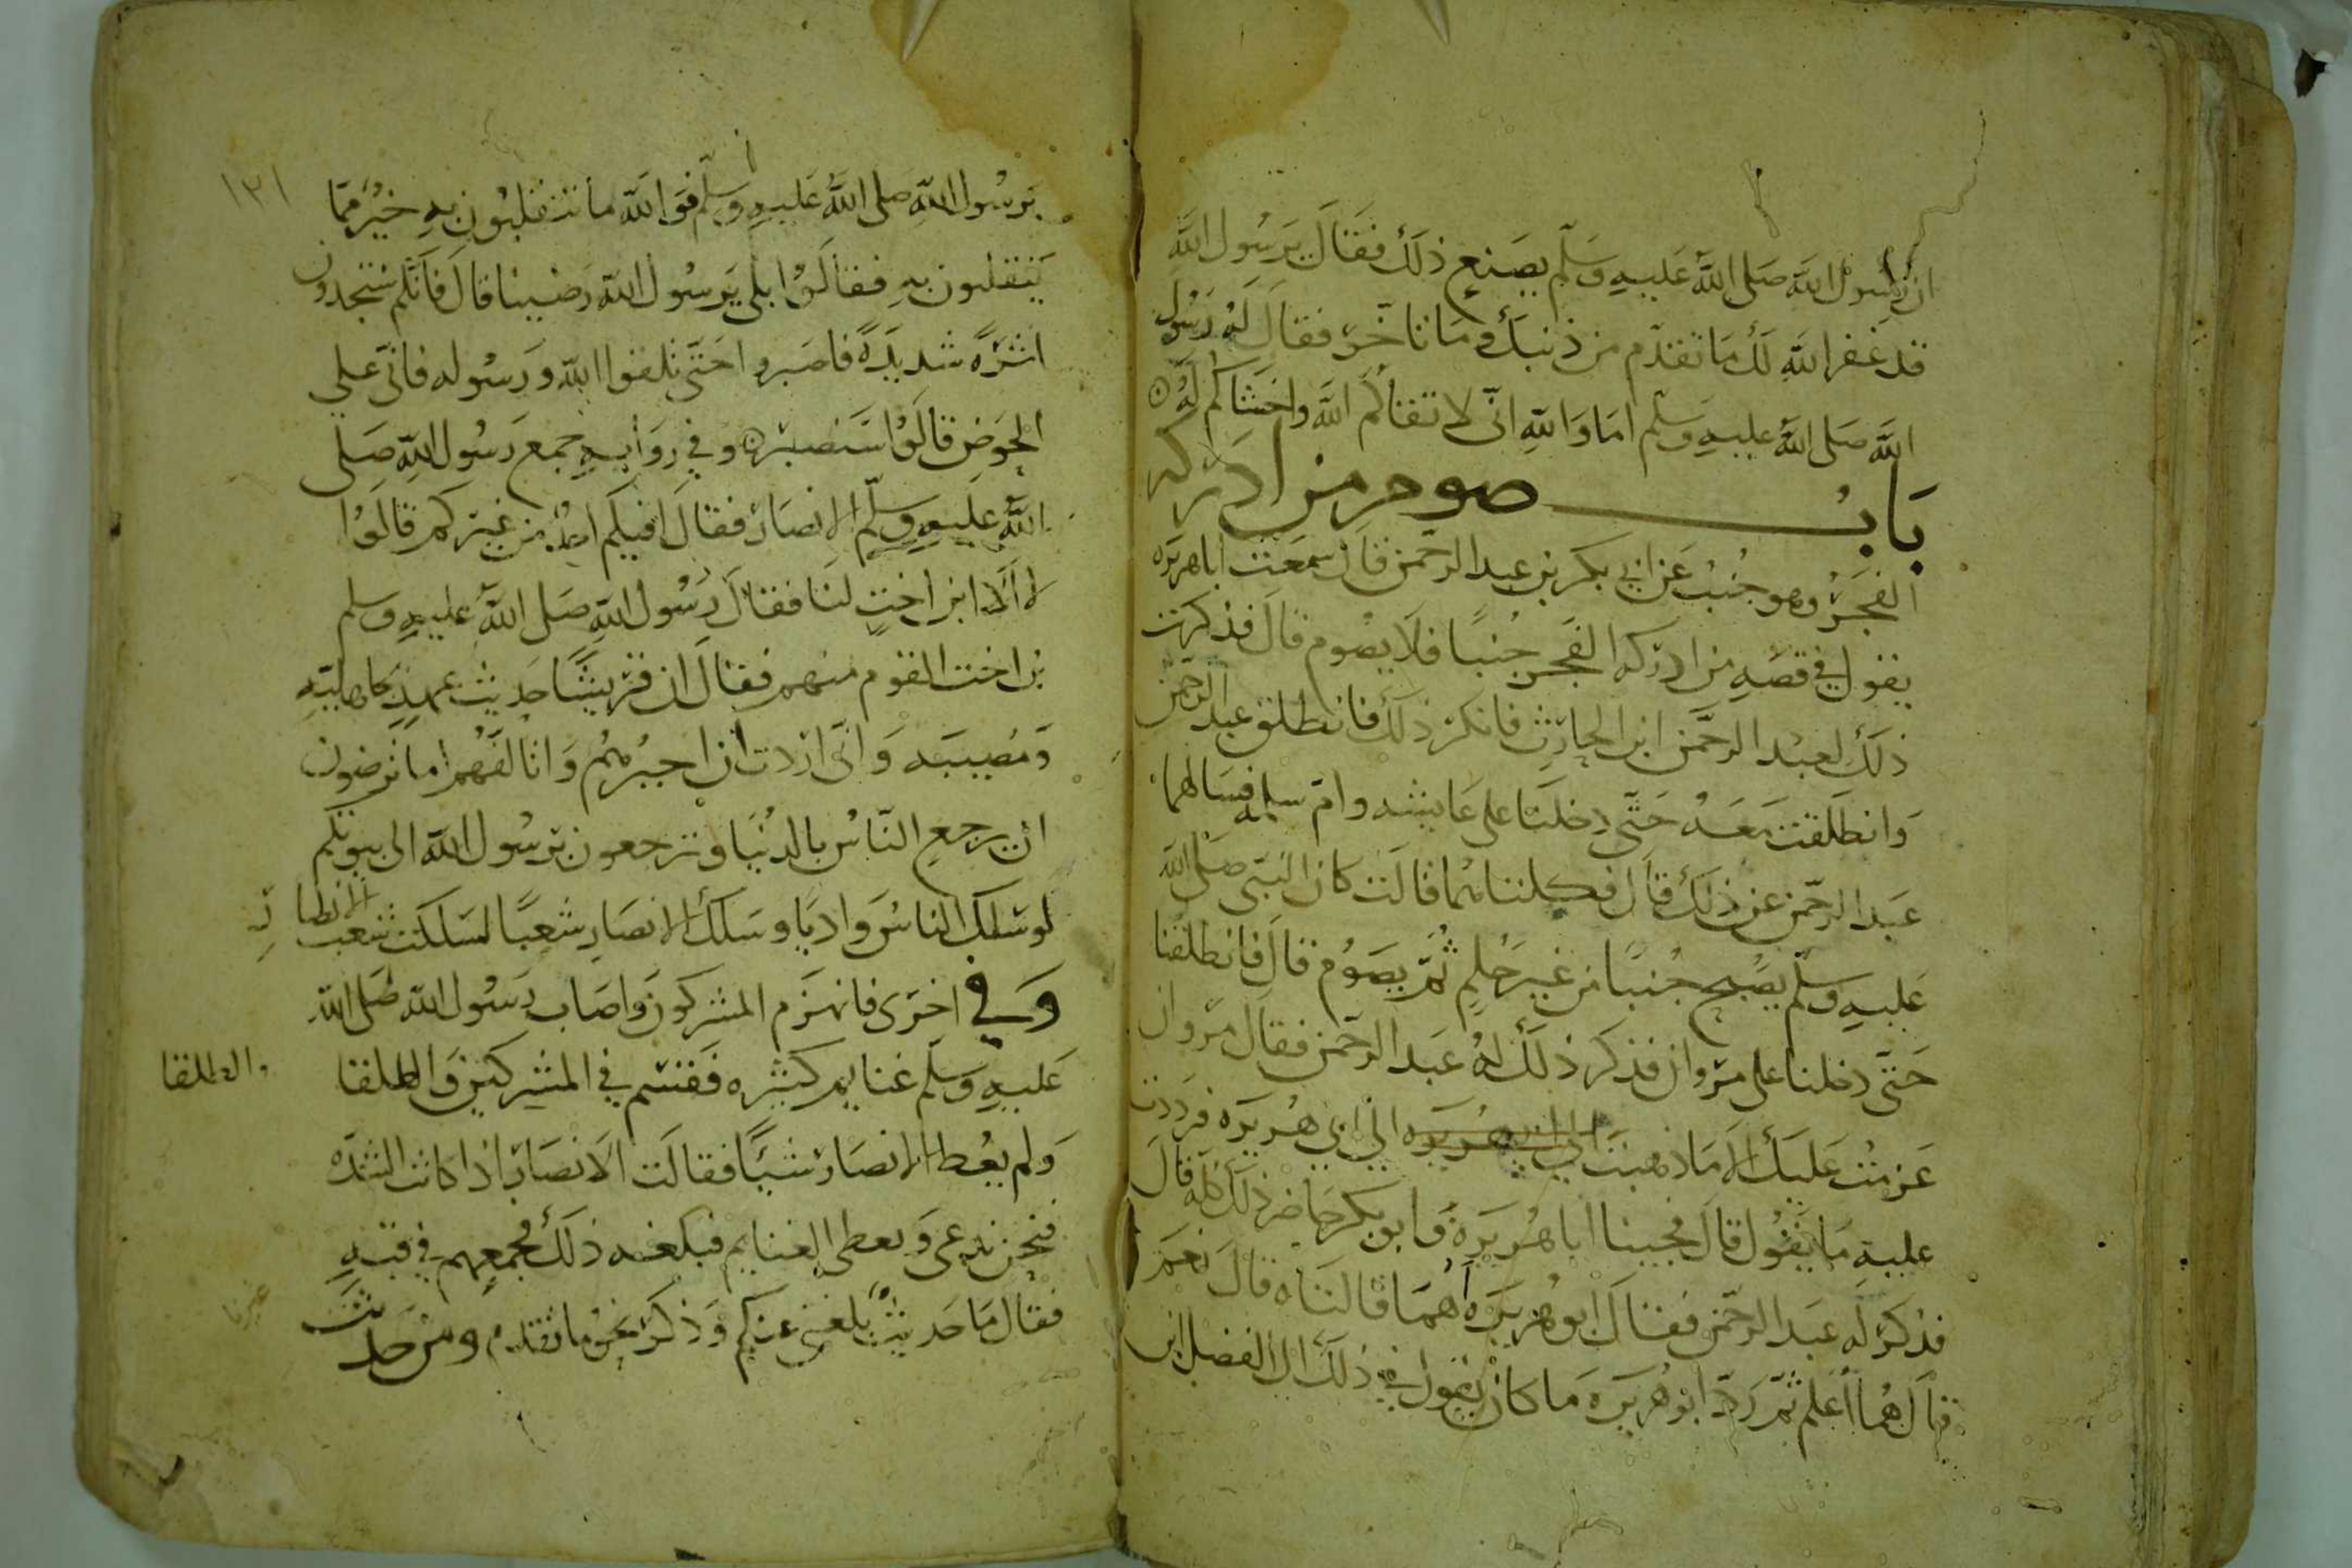 ان رسول الله صلى الله عليه وسلم يصنع ذلك فقال يرسول الله
قد غفر الله لك ما تقدم من ذنبك وما تاخر فقال له رسول
الله صلى الله عليه وسلم اما والله اني لاتقاكم الله واخشاكم له
باب صوم من ادركه
الفجر وهو جنب عن ابي بكر بن عبد الرحمن قال سمعت ابا هريره
يقول في قصه من ادركه الفجر جنبا فلا يصوم قال فذكرت
ذلك لعبد الرحمن ابن الحارث فانكر ذلك فانطلق عبد الرحمن
وانطلقت معه حتى دخلنا على عايشه وام سلمه فسالهما
عبد الرحمن عن ذلك قال فكلتاهما قالت كان النبي صلى الله
عليه وسلم يصبح جنبا من غير حلم ثم يصوم قال فانطلقنا
حتى دخلنا على مروان فذكر ذلك له عبد الرحمن فقال مروان
عزمت عليك الا ما ذهبت الى ابي هريره فرددت
عليه ما يقول قال فجينا ابا هريرة وابو بكر حاضر ذلك كله قال
فذكر له عبد الرحمن فقال ابو هريره اهما قالتاه قال نعم
قال هما اعلم ثم رد ابو هريره ما كان يقول في ذلك الى الفضل ابن
١٣١
برسول الله صلى الله عليه وسلم فوالله ما تنقلبون به خير مما
ينقلبون به فقالوا بلى يرسول الله رضينا قال فانكم ستجدون
اثرة شديدة فاصبروا حتى تلقوا الله ورسوله فاني على
الحوض قالوا سنصبر وفي روايه جمع رسول الله صلى
الله عليه وسلم الانصار فقال افيكم احد من غيركم قالوا
لا الا ابن اخت لنا فقال رسول الله صلى الله عليه وسلم
بن اخت القوم منهم فقال ان قريشا حديث عهد بجاهليه
ومصيبه واني اردت ان اجبرهم واتالفهم اما ترضون
ان يرجع الناس بالدنيا وترجعون برسول الله الى بيوتكم
لو سلك الناس واديا وسلك الانصار شعبا لسلكت شعب الانصار
وفي اخرى فانهزم المشركون واصاب رسول الله صلى الله
عليه وسلم غنايم كثيره فقسم في المشركين والطلقا
والطلقا
ولم يعط الانصار شيئا فقالت الانصار اذا كانت الشده
فنحن ندعى ويعطى الغنايم فبلغه ذلك فجمعهم في قبه
فقال ما حديث بلغني عنكم وذكر نحو ما تقدم ومن حديث